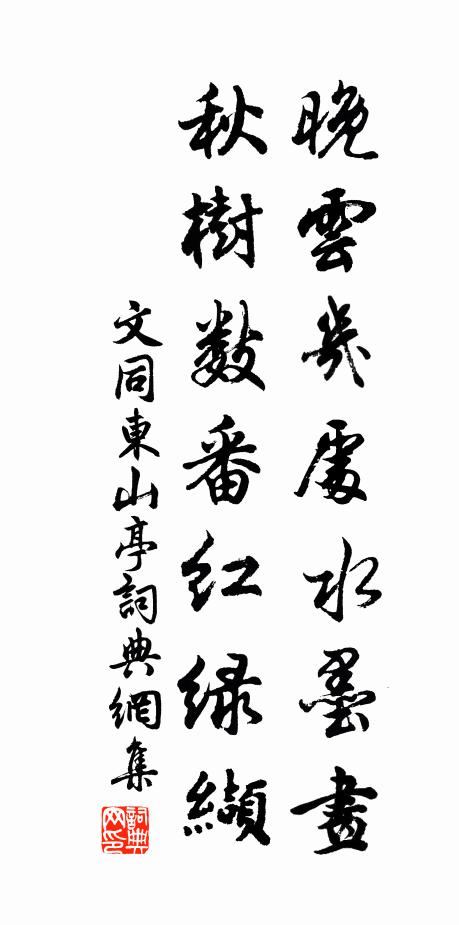 晚雲幾處水墨畫
秋樹数番紅緑纈
文同東山亭詞典網集
詞典网印